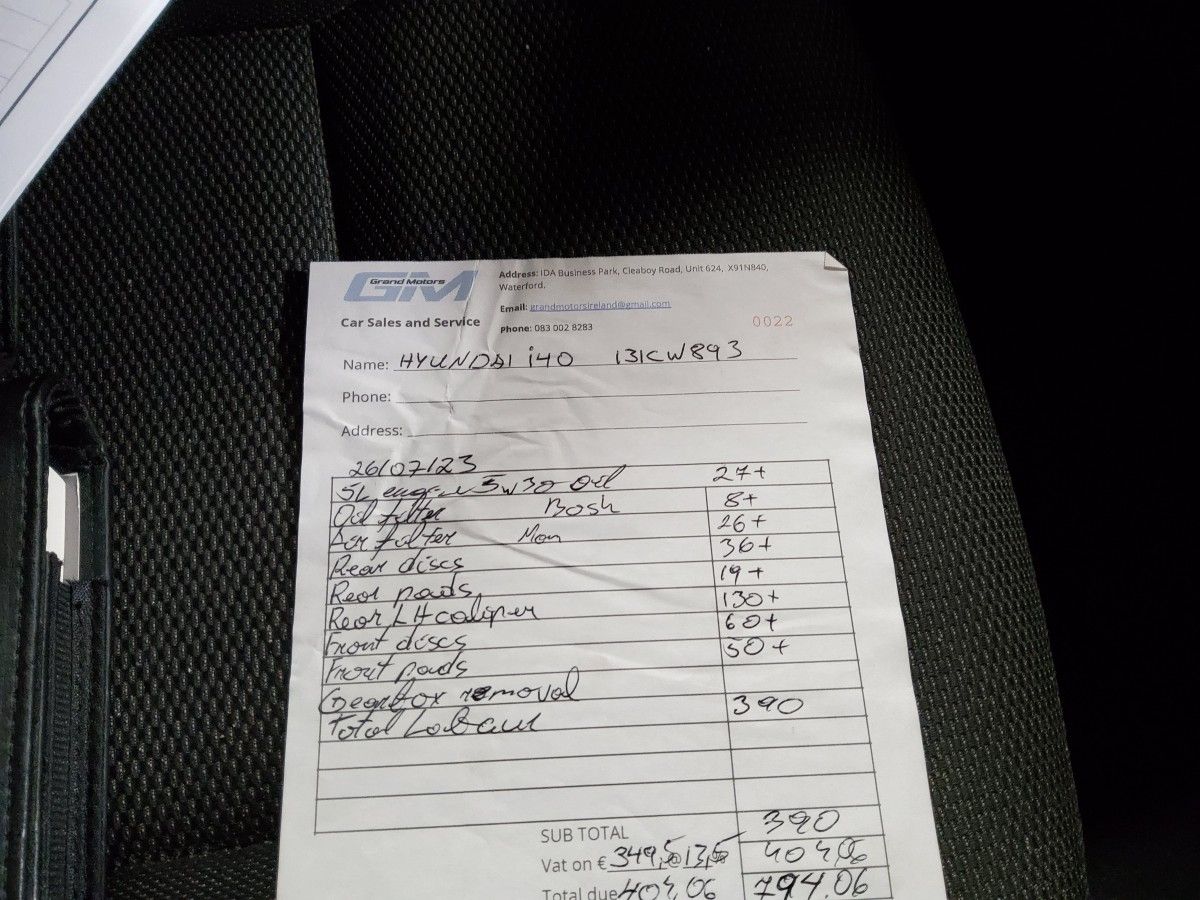 GM
Grand Motors
Car Sales and Service
Address: IDA Business Park, Cleaboy Road, Unit 624, X91N840,
Waterford.
Email: grandmotorsireland@gmail.com
Phone: 083 002 8283
0022
Name: HYUNDAI i40 131KW893
Phone:
Address:
26/07/23
5L engine 5w30 Oil 27+
Oil filter Bosh 8+
Air filter Man 26+
Rear discs 36+
Rear pads 19+
Rear LH caliper 130+
Front discs 60+
Front pads 50+
Gearbox removal
Total Labour 390
SUB TOTAL 390
Vat on € 349,5@13,5 404,06
Total due 404,06 794.06